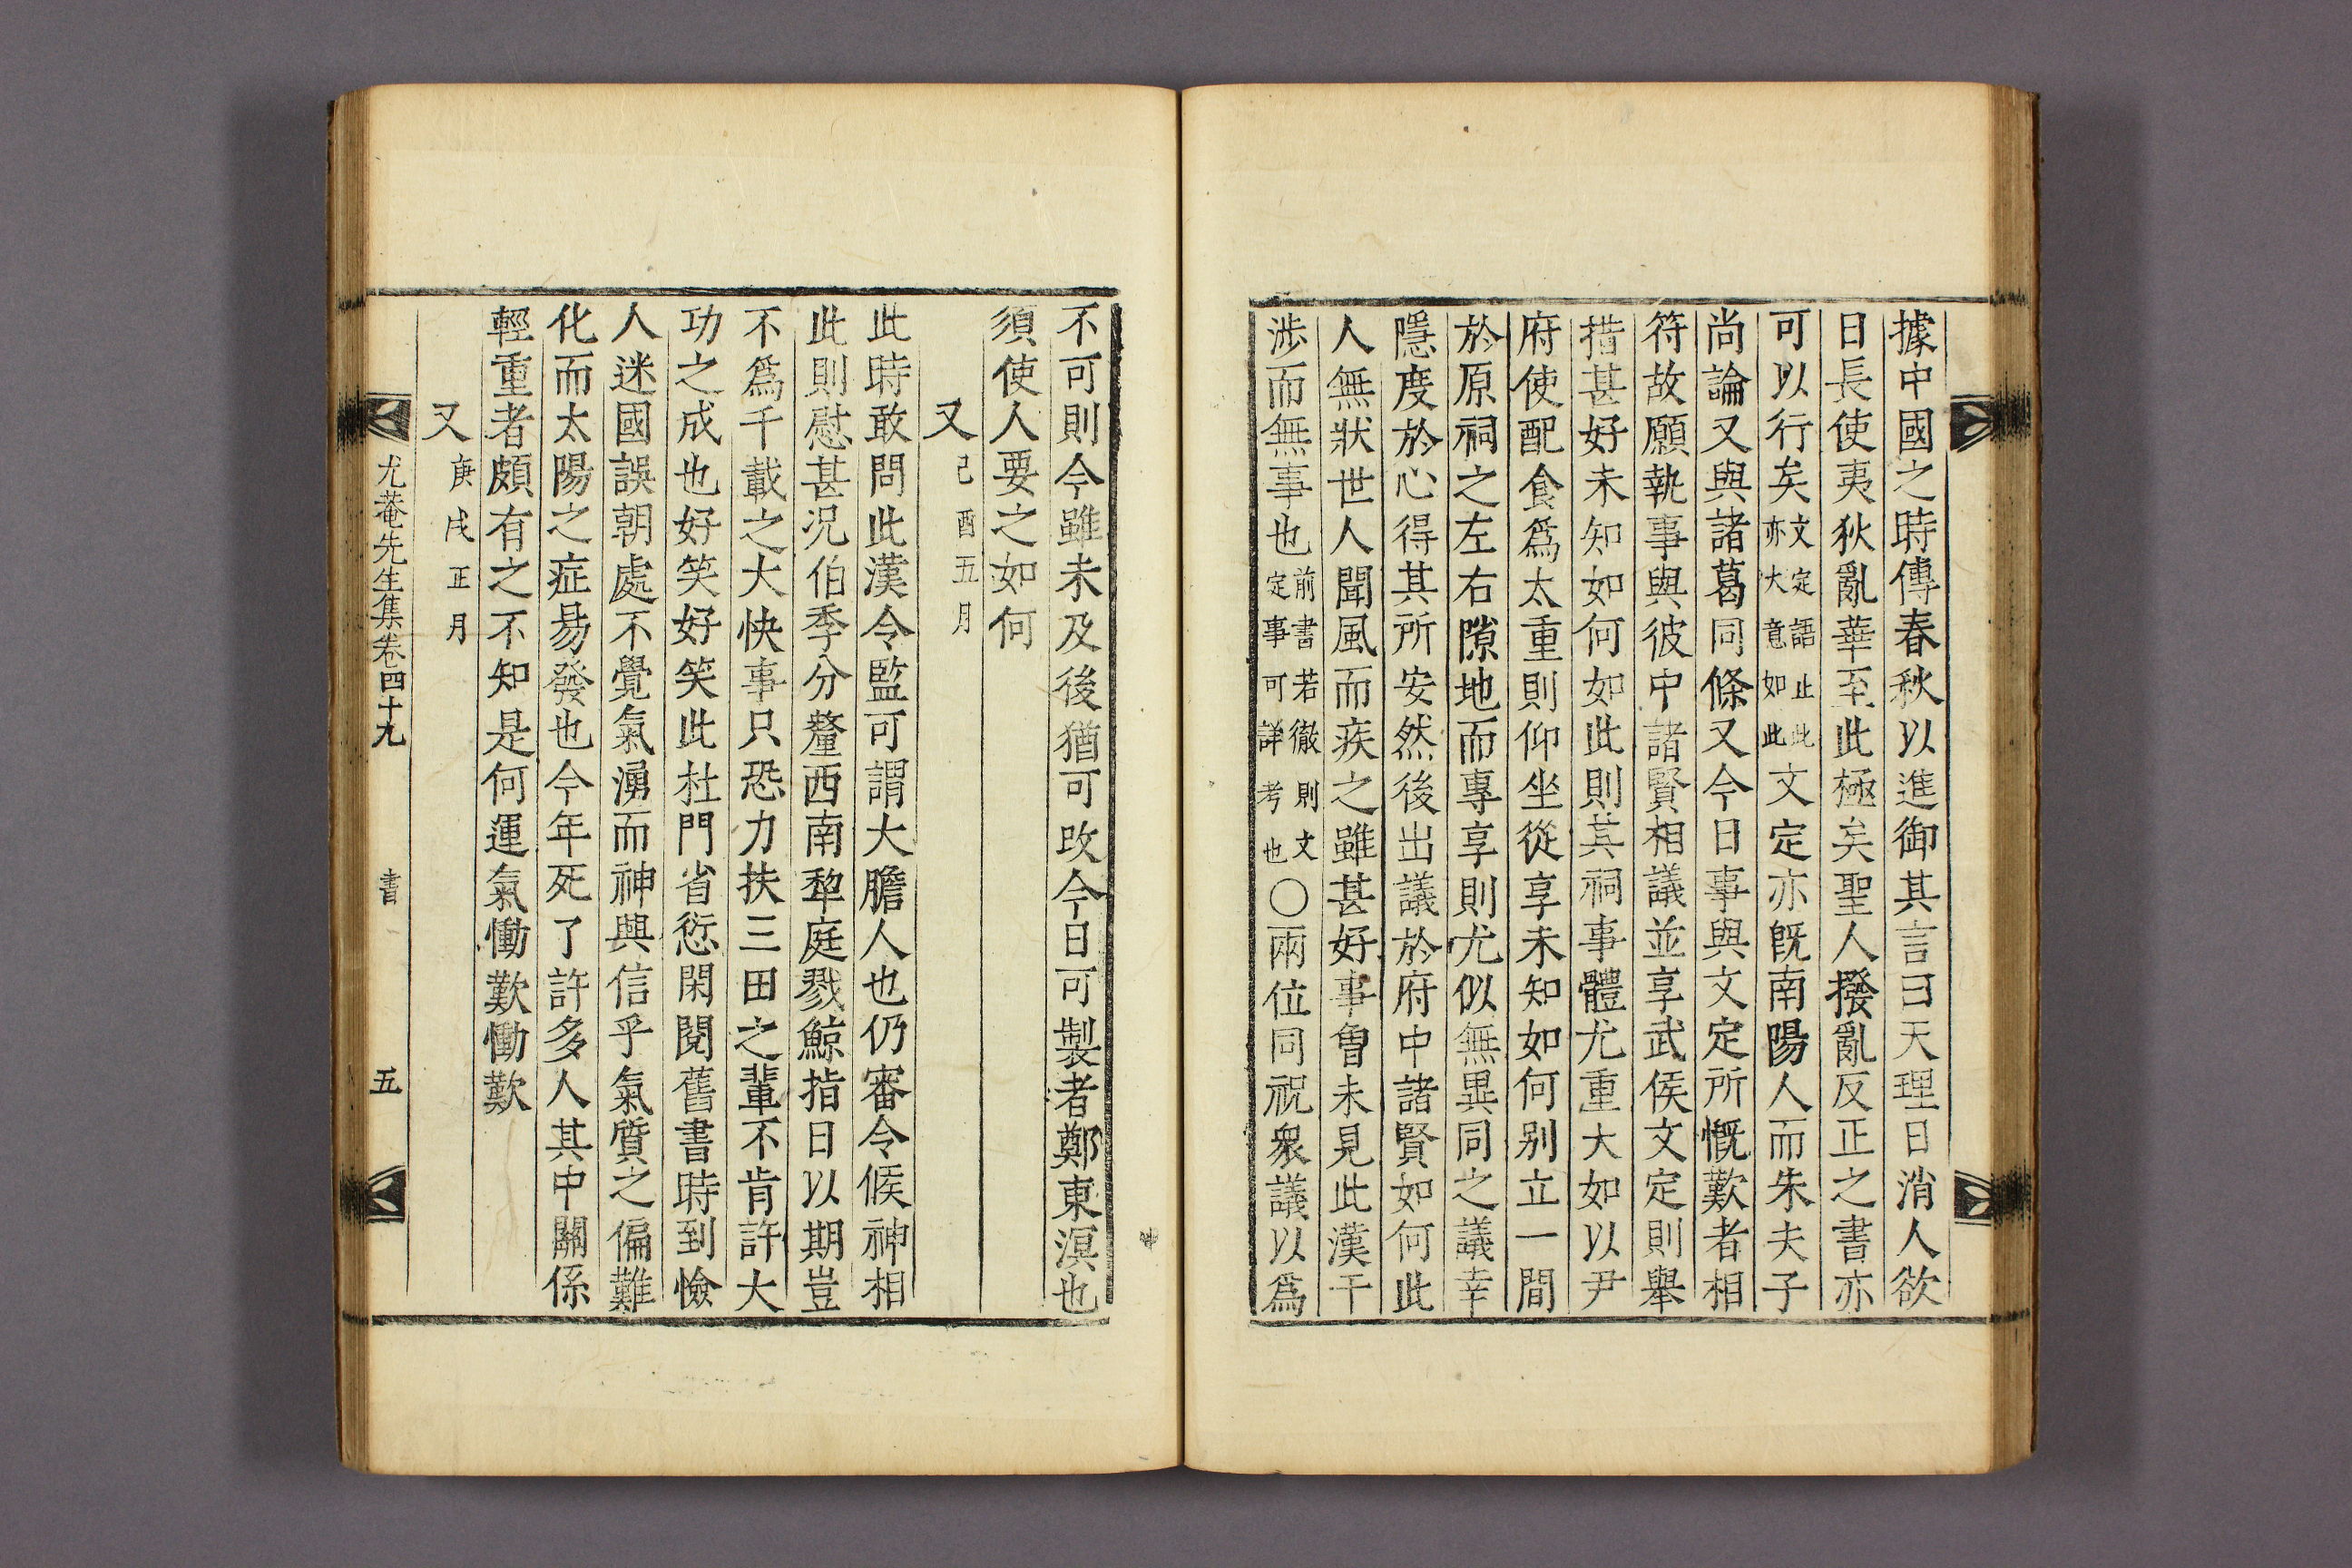 據中國之時傳春秋以進御其言曰天理日消人欲
日長使夷狄亂華至此極矣聖人撥亂反正之書亦
可以行矣文定語止此亦大意如此文定亦旣南陽人而朱夫子
尚論又與諸葛同條又今日事與文定所慨歎者相
符故願執事與彼中諸賢相議並享武侯文定則舉
措甚好未知如何如此則其祠事體尤重大如以尹
府使配食爲太重則仰坐從享未知如何别立一間
於原祠之左右隙地而專享則尤似無異同之議幸
隱度於心得其所安然後出議於府中諸賢如何此
人無狀世人聞風而疾之雖甚好事曾未見此漢干
涉而無事也前書若徹則文定事可詳考也〇兩位同祝衆議以爲
不可則今雖未及後猶可改今日可製者鄭東溟也
須使人要之如何
又己酉五月
此時敢問此漢令監可謂大膽人也仍審令候神相
此則慰甚况伯季分釐西南犂庭戮鯨指日以期豈
不爲千載之大快事只恐力扶三田之輩不肯許大
功之成也好笑好笑此杜門省愆閑閱舊書時到憸
人迷國誤朝處不覺氣湧而神興信乎氣質之偏難
化而太陽之症易發也今年死了許多人其中關係
輕重者頗有之不知是何運氣慟歎慟歎
又庚戌正月
尤菴先生集卷四十九 書 五